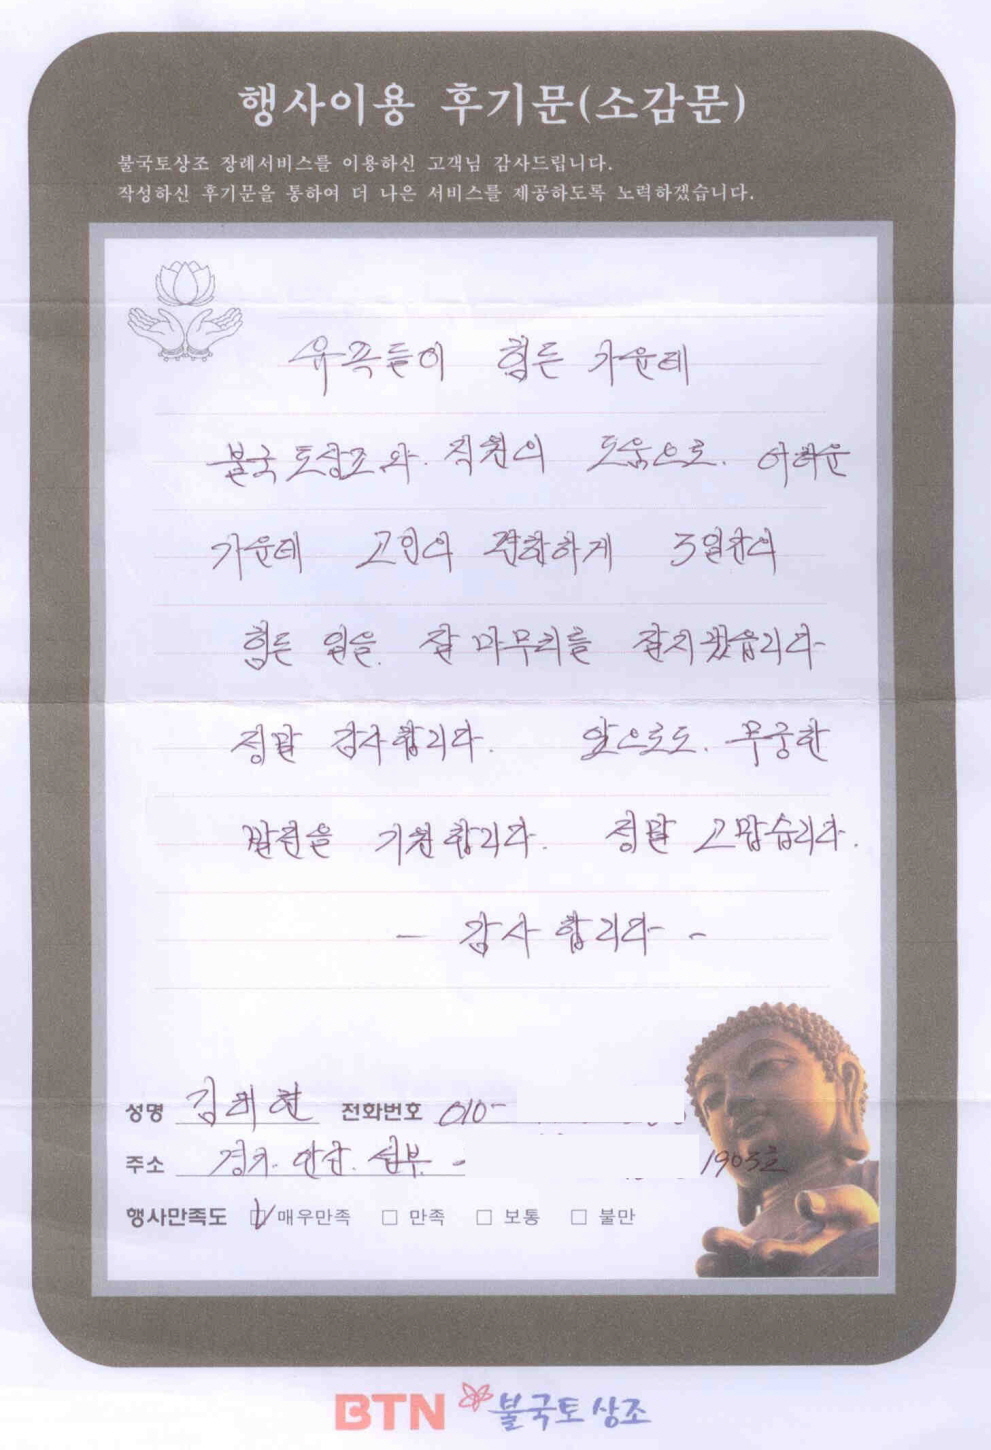 행사이용 후기문(소감문)
불국토상조 장례서비스를 이용하신 고객님 감사드립니다.
작성하신 후기문을 통하여 더 나은 서비스를 제공하도록 노력하겠습니다.
유족들이 힘든 가운데
불국토상조와 직원의 도움으로. 어려운
가운데 고인의 편안하게 3일간의
힘든 일을. 잘 마무리를 잘지켰습니다
정말 감사합니다. 앞으로도. 무궁한
발전을 기원합니다. 정말 고맙습니다.
- 감사합니다 -
성명 김 현 전화번호 010-
주소 경기. 안산. 성부 - 1903호
행사만족도 ☑ 매우만족 □ 만족 □ 보통 □ 불만
BTN 불국토상조